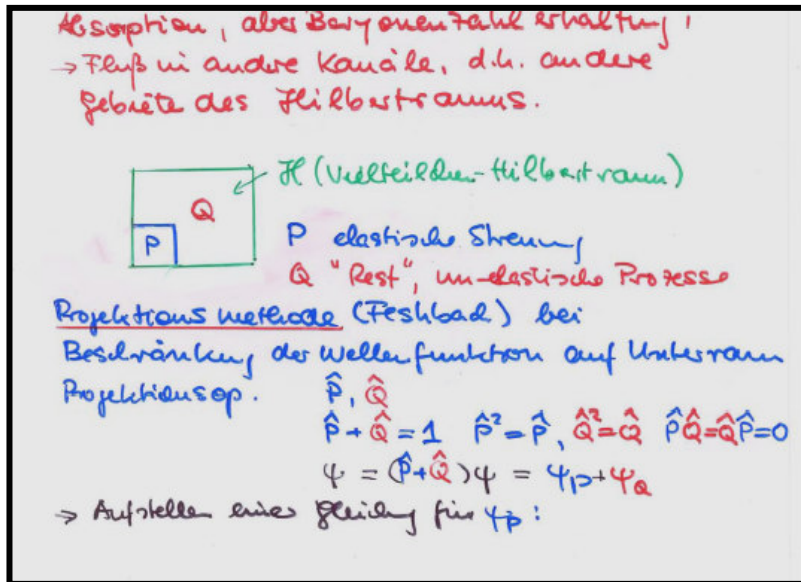 Absorption, aber Baryonenzahlerhaltung!
→ Fluß in andere Kanäle, d.h. andere
Gebiete des Hilbertraums.
ℋ (Vielteilchen-Hilbertraum)
Q
P
P elastische Streuung
Q "Rest", un-elastische Prozesse
Projektionsmethode (Feshbach) bei
Beschränkung der Wellenfunktion auf Unterraum
Projektionsop. P̂, Q̂
P̂ + Q̂ = 1 P̂² = P̂, Q̂² = Q̂ P̂Q̂ = Q̂P̂ = 0
ψ = (P̂ + Q̂)ψ = ψ_P + ψ_Q
→ Aufstellen einer Gleichung für ψ_P :